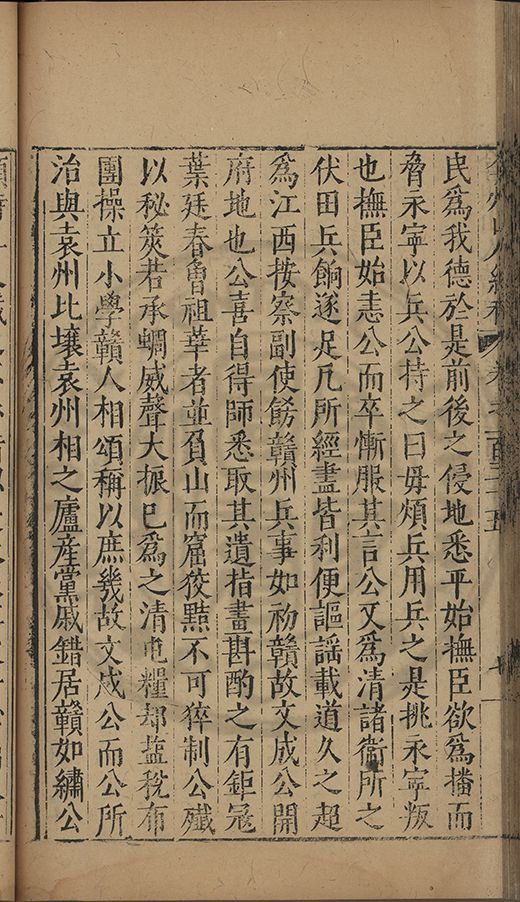 民爲我德於是前後之侵地悉平始撫臣欲爲播而
脅永寧以兵公持之曰毋煩兵用兵之是挑永寧叛
也撫臣始恚公而卒慚服其言公又爲清諸衞所之
伏田兵餉遂足凡所經畫皆利便謳謡載道久之超
爲江西按察副使飭贛州兵事如初贛故文成公開
府地也公喜自得師悉取其遺指畫斟酌之有鉅冦
葉廷春魯祖華者並負山而窟狡黠不可猝制公殲
以秘筴若承蜩威聲大振已爲之清屯糧却塩稅布
團操立小學贛人相頌稱以庶幾故文成公而公所
治與袁州比壤袁州相之廬産黨戚錯居贛如繡公